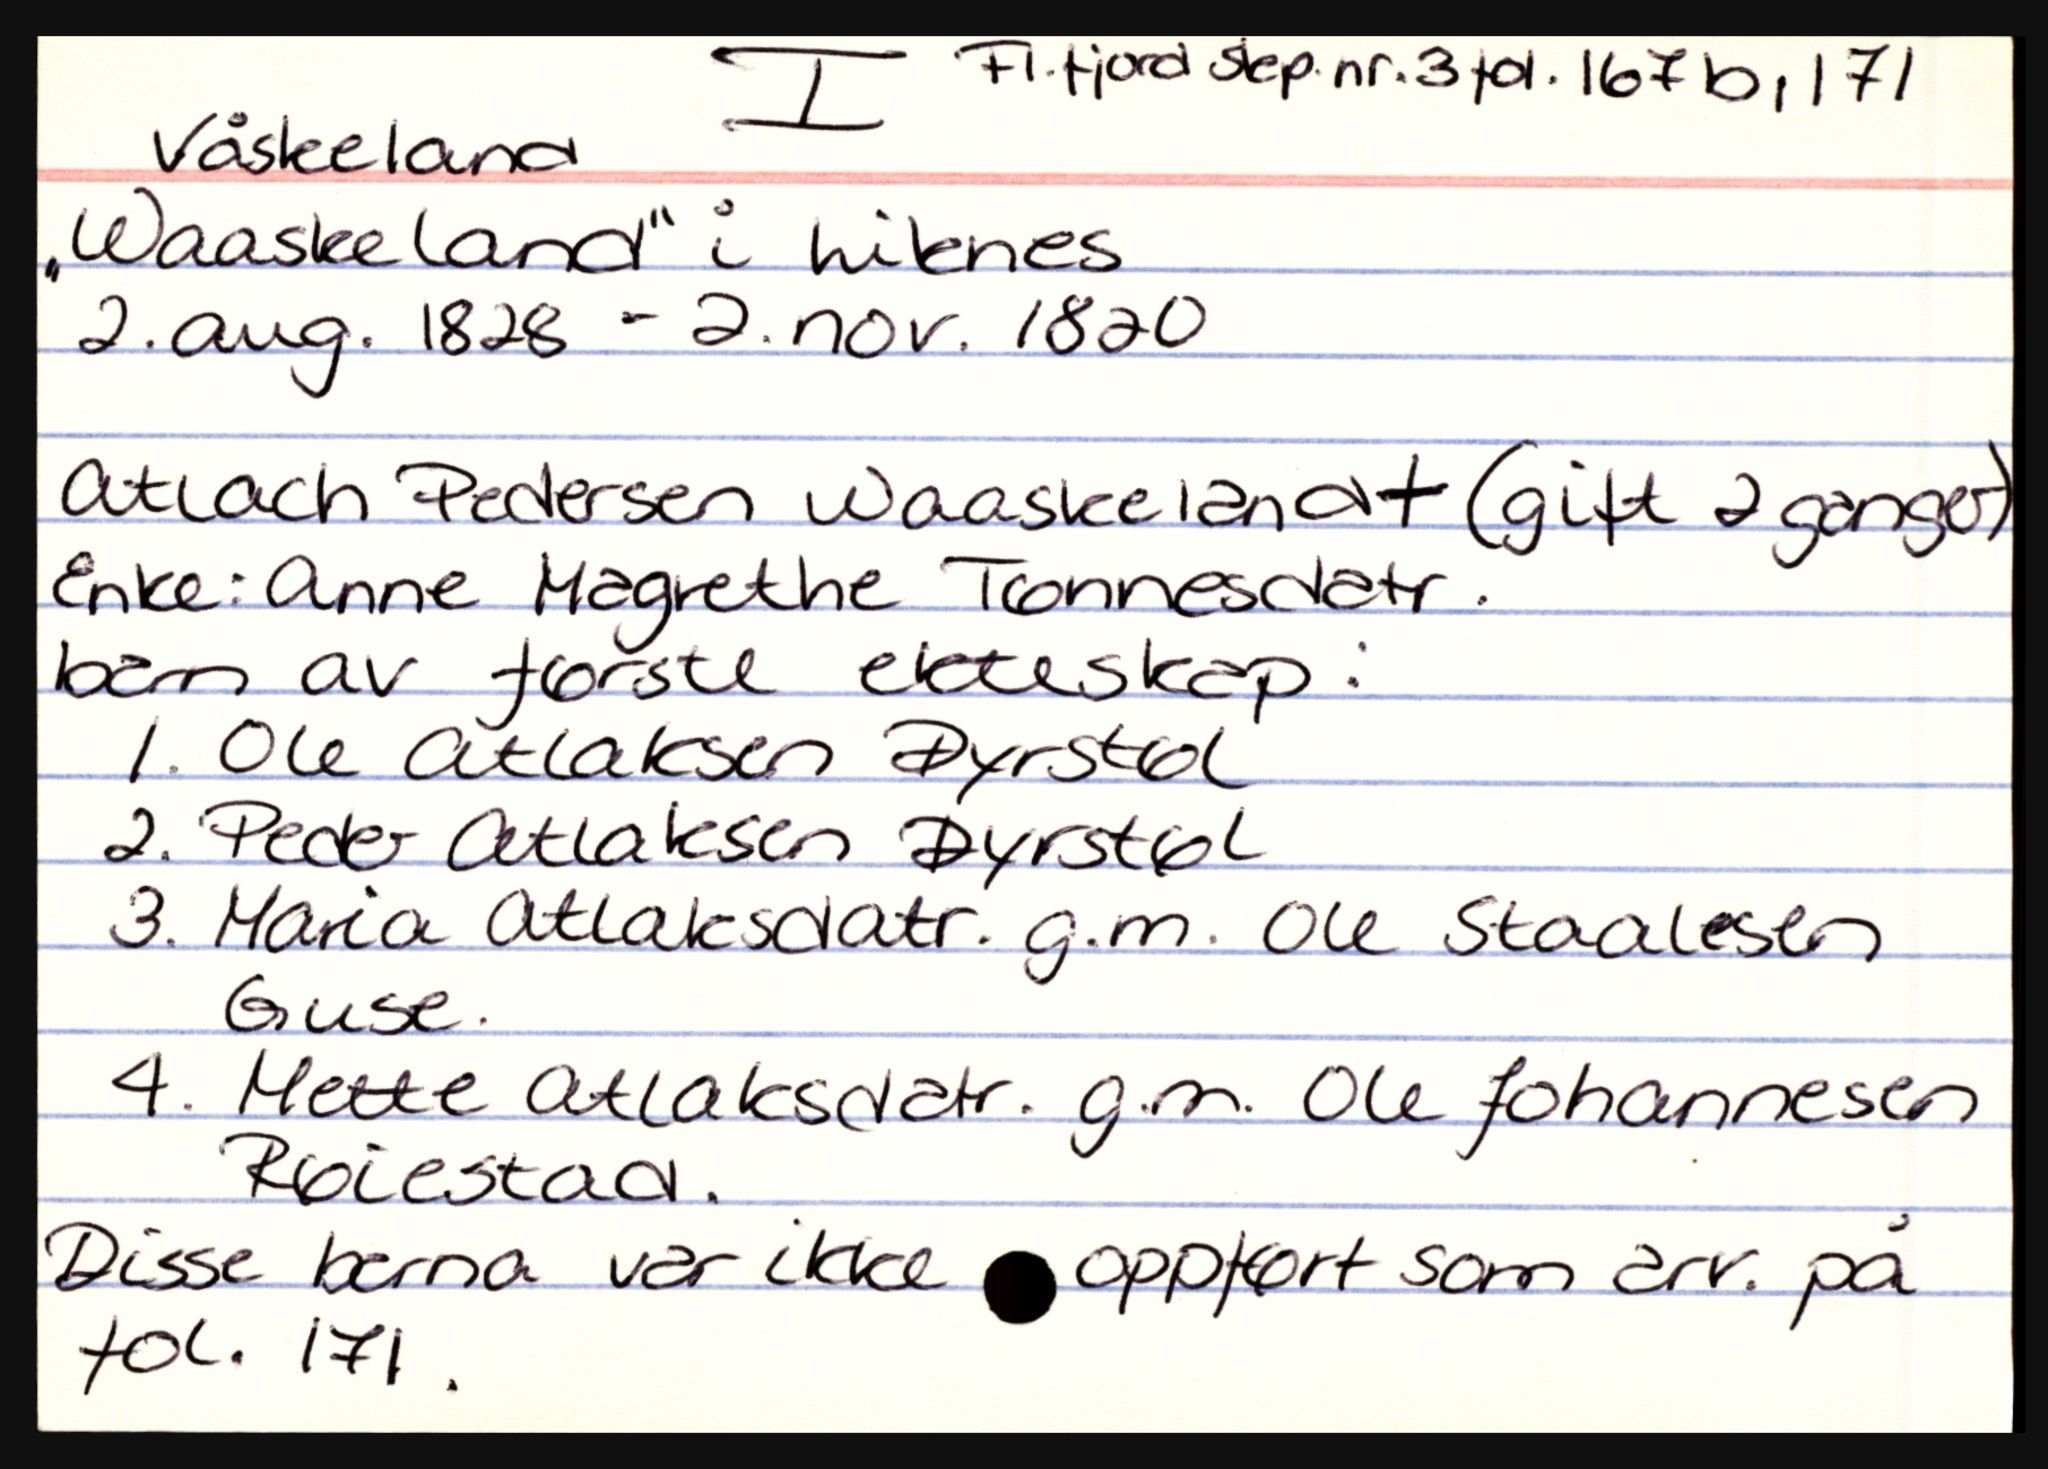 I Fl.fjord skp. nr. 3 fol. 167 b, 171
Våskeland
„Waaskeland" i Liknes
2. aug. 1828 - 2. nov. 1820

Atlach Pedersen Waaskeland † (gift 2 ganger)
Enke: Anne Magrethe Tønnesdatr.
barn av første ekteskap:
1. Ole Atlaksen Dyrstøl
2. Peder Atlaksen Dyrstøl
3. Maria Atlaksdatr. g.m. Ole Staalesen
Guse.
4. Mette Atlaksdatr. g.m. Ole Johannesen
Røiestad.
Disse barna var ikke oppført som arv. på
fol. 171.